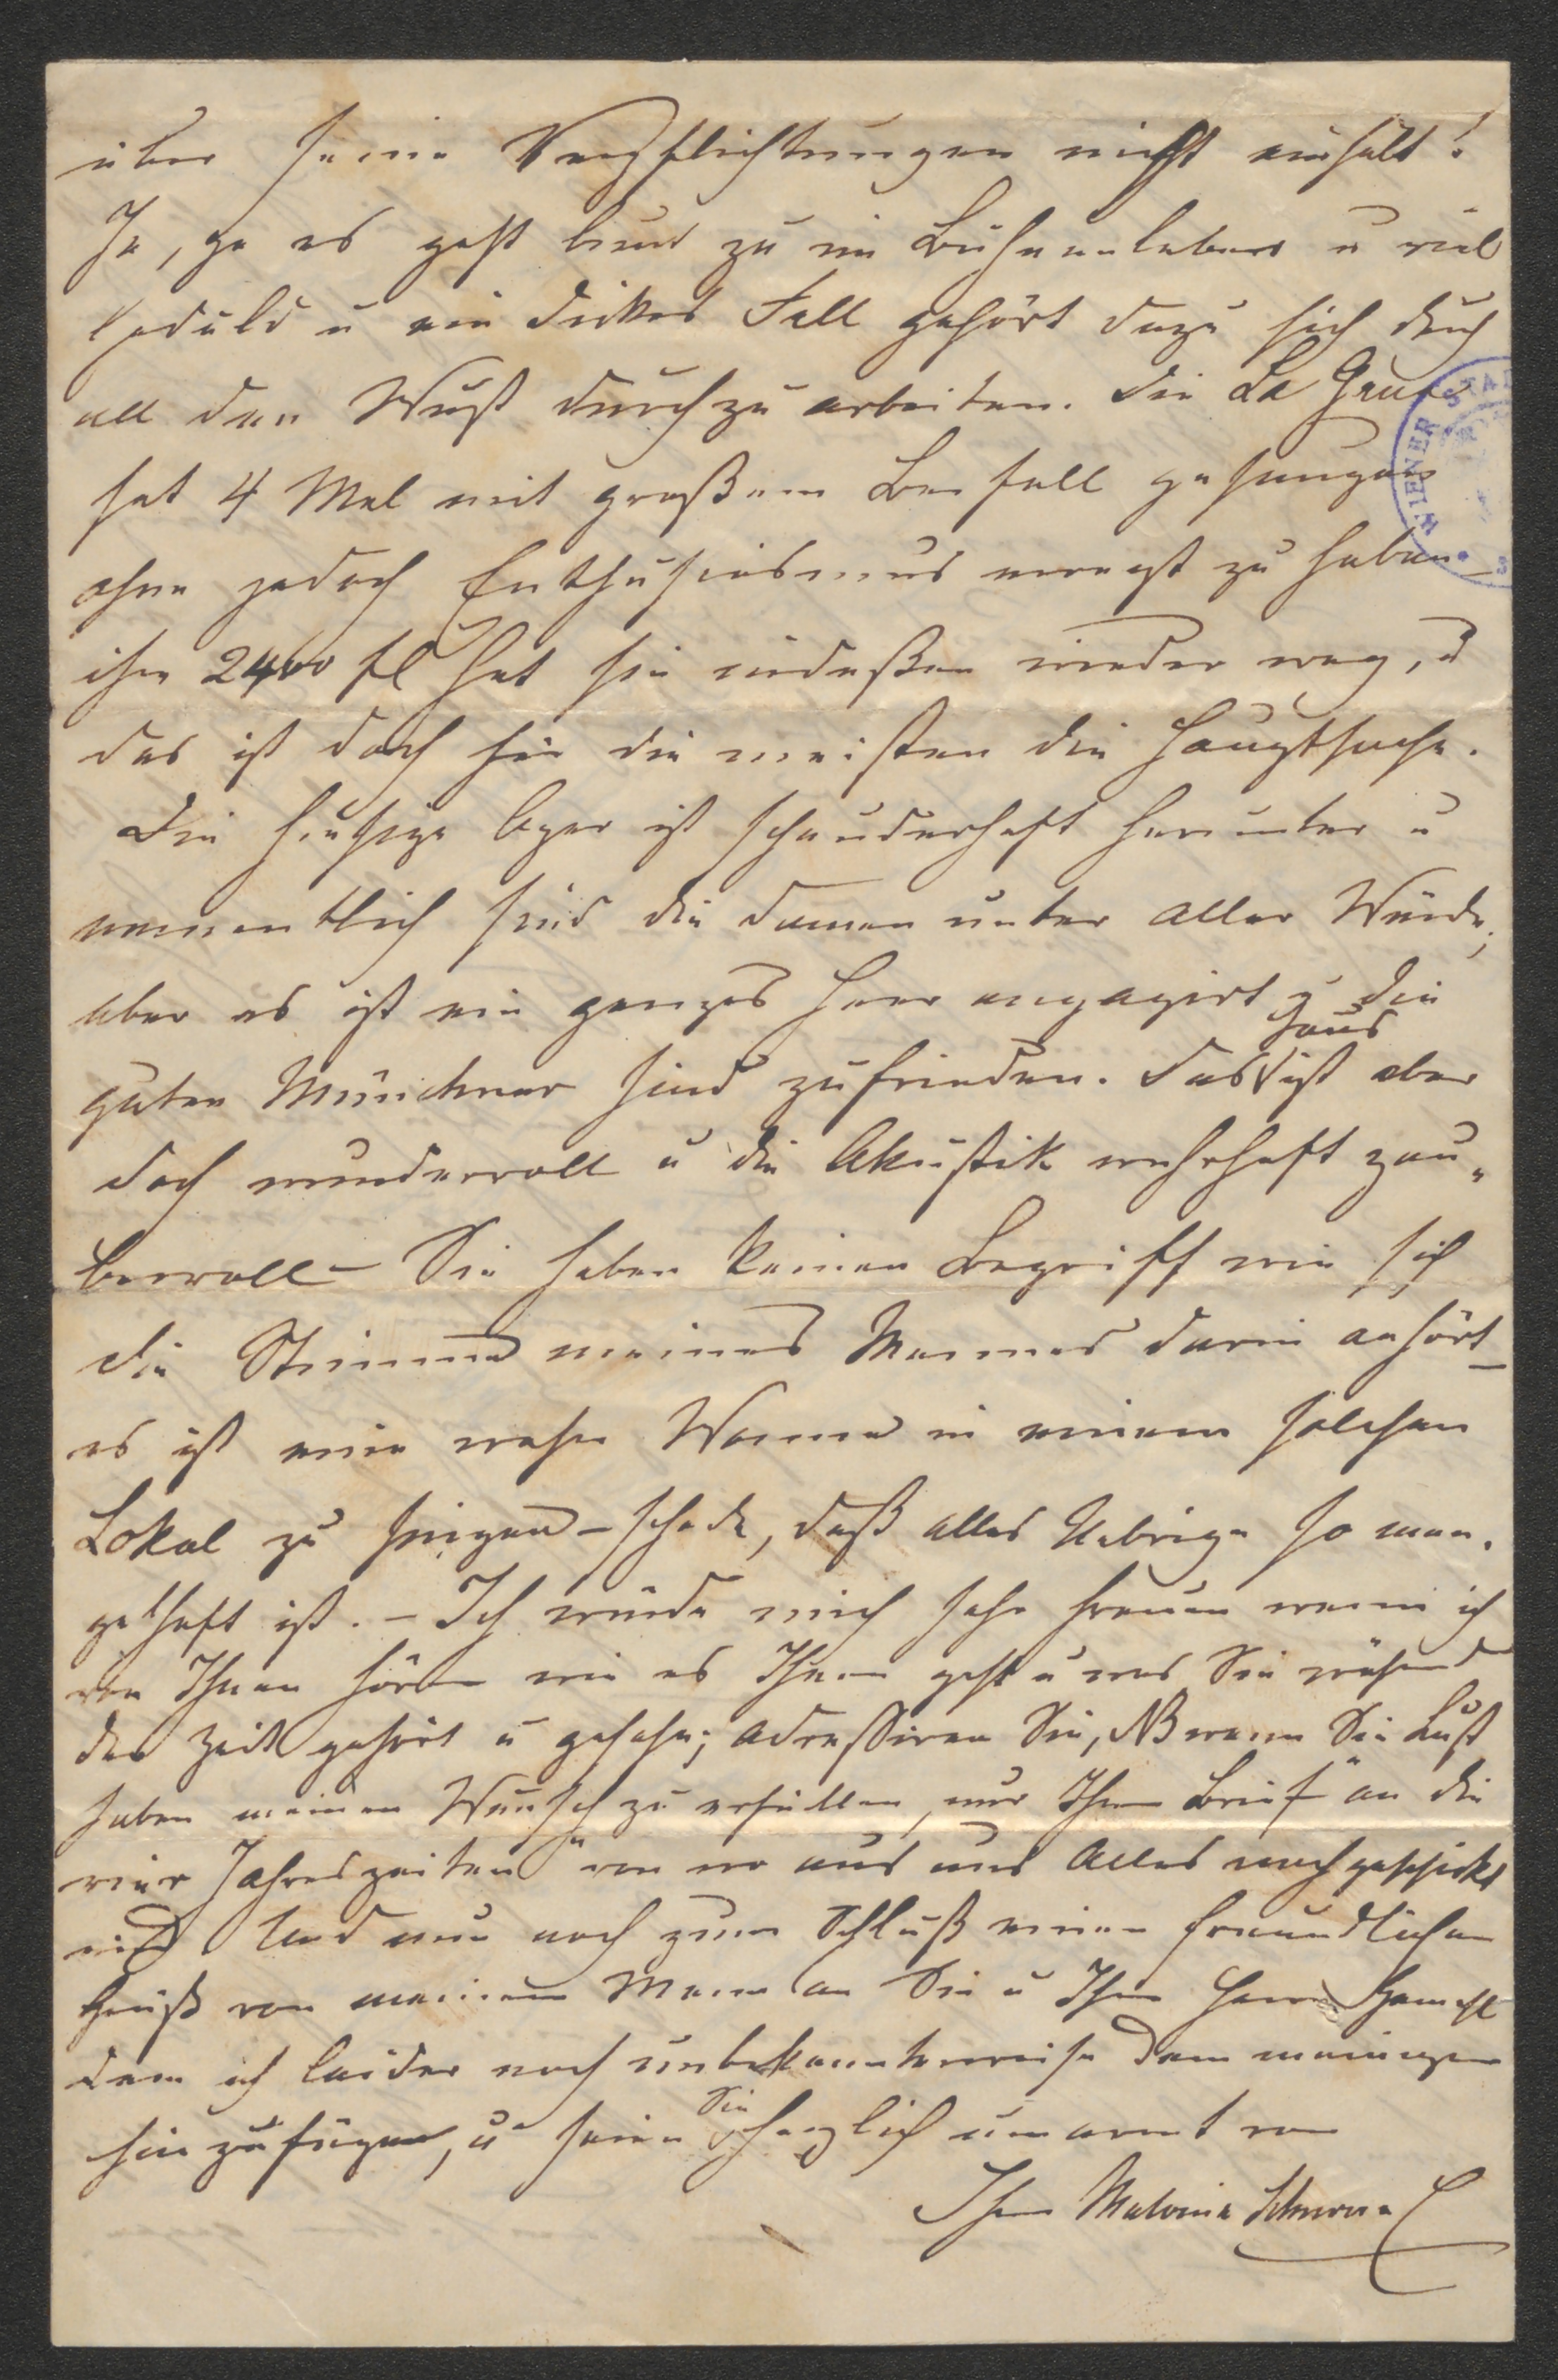 über seine Verpflichtungen nicht einhält!
Ja, ja es geht bunt zu im Bühnenleben u viel
Geduld u ein dickes Fell gehört dazu sich durch
all den Wust durchzuarbeiten. Die La Grua
hat 4 Mal mit großem Beifall gesungen
ohne jedoch Enthusiasmus erregt zu haben –
ihre 2400 fl hat sie indeßen wieder weg, u
das ist doch für die meisten die Hauptsache.
Die hiesige Oper ist schauderhaft herunter u
namentlich sind die Damen unter aller Würde,
aber es ist ein ganzes Heer engagirt u die
guten Münchner sind zufrieden. Das Haus ist aber
doch wundervoll u die Akustik wahrhaft zau„
bervoll – Sie haben keinen Begriff wie sich
die Stimme meines Mannes darin anhört –
es ist eine wahre Wonne in einem solchen
Lokal zu singen – schade, daß alles Uebrige so man„
gelhaft ist. – Ich würde mich sehr freuen wenn ich
von Ihnen hörte wie es Ihnen geht u was Sie während
der Zeit gehört u gesehn; adreßiren Sie, NB wenn Sie Lust
haben meinen Wunsch zu erfüllen, nur Ihren Brief "an die
vier Jahreszeiten" von wo aus uns Alles nachgeschickt
wird. Und nun noch zum Schluß einen freundlichen
Gruß von meinem Mann an Sie u Ihren Herrn Gemahl
dem ich leider noch unbekannterweise den meinigen
hinzufüge, u seien Sie herzlich umarmt von
Ihrer Malvina Schnorr v C
WIENER STA